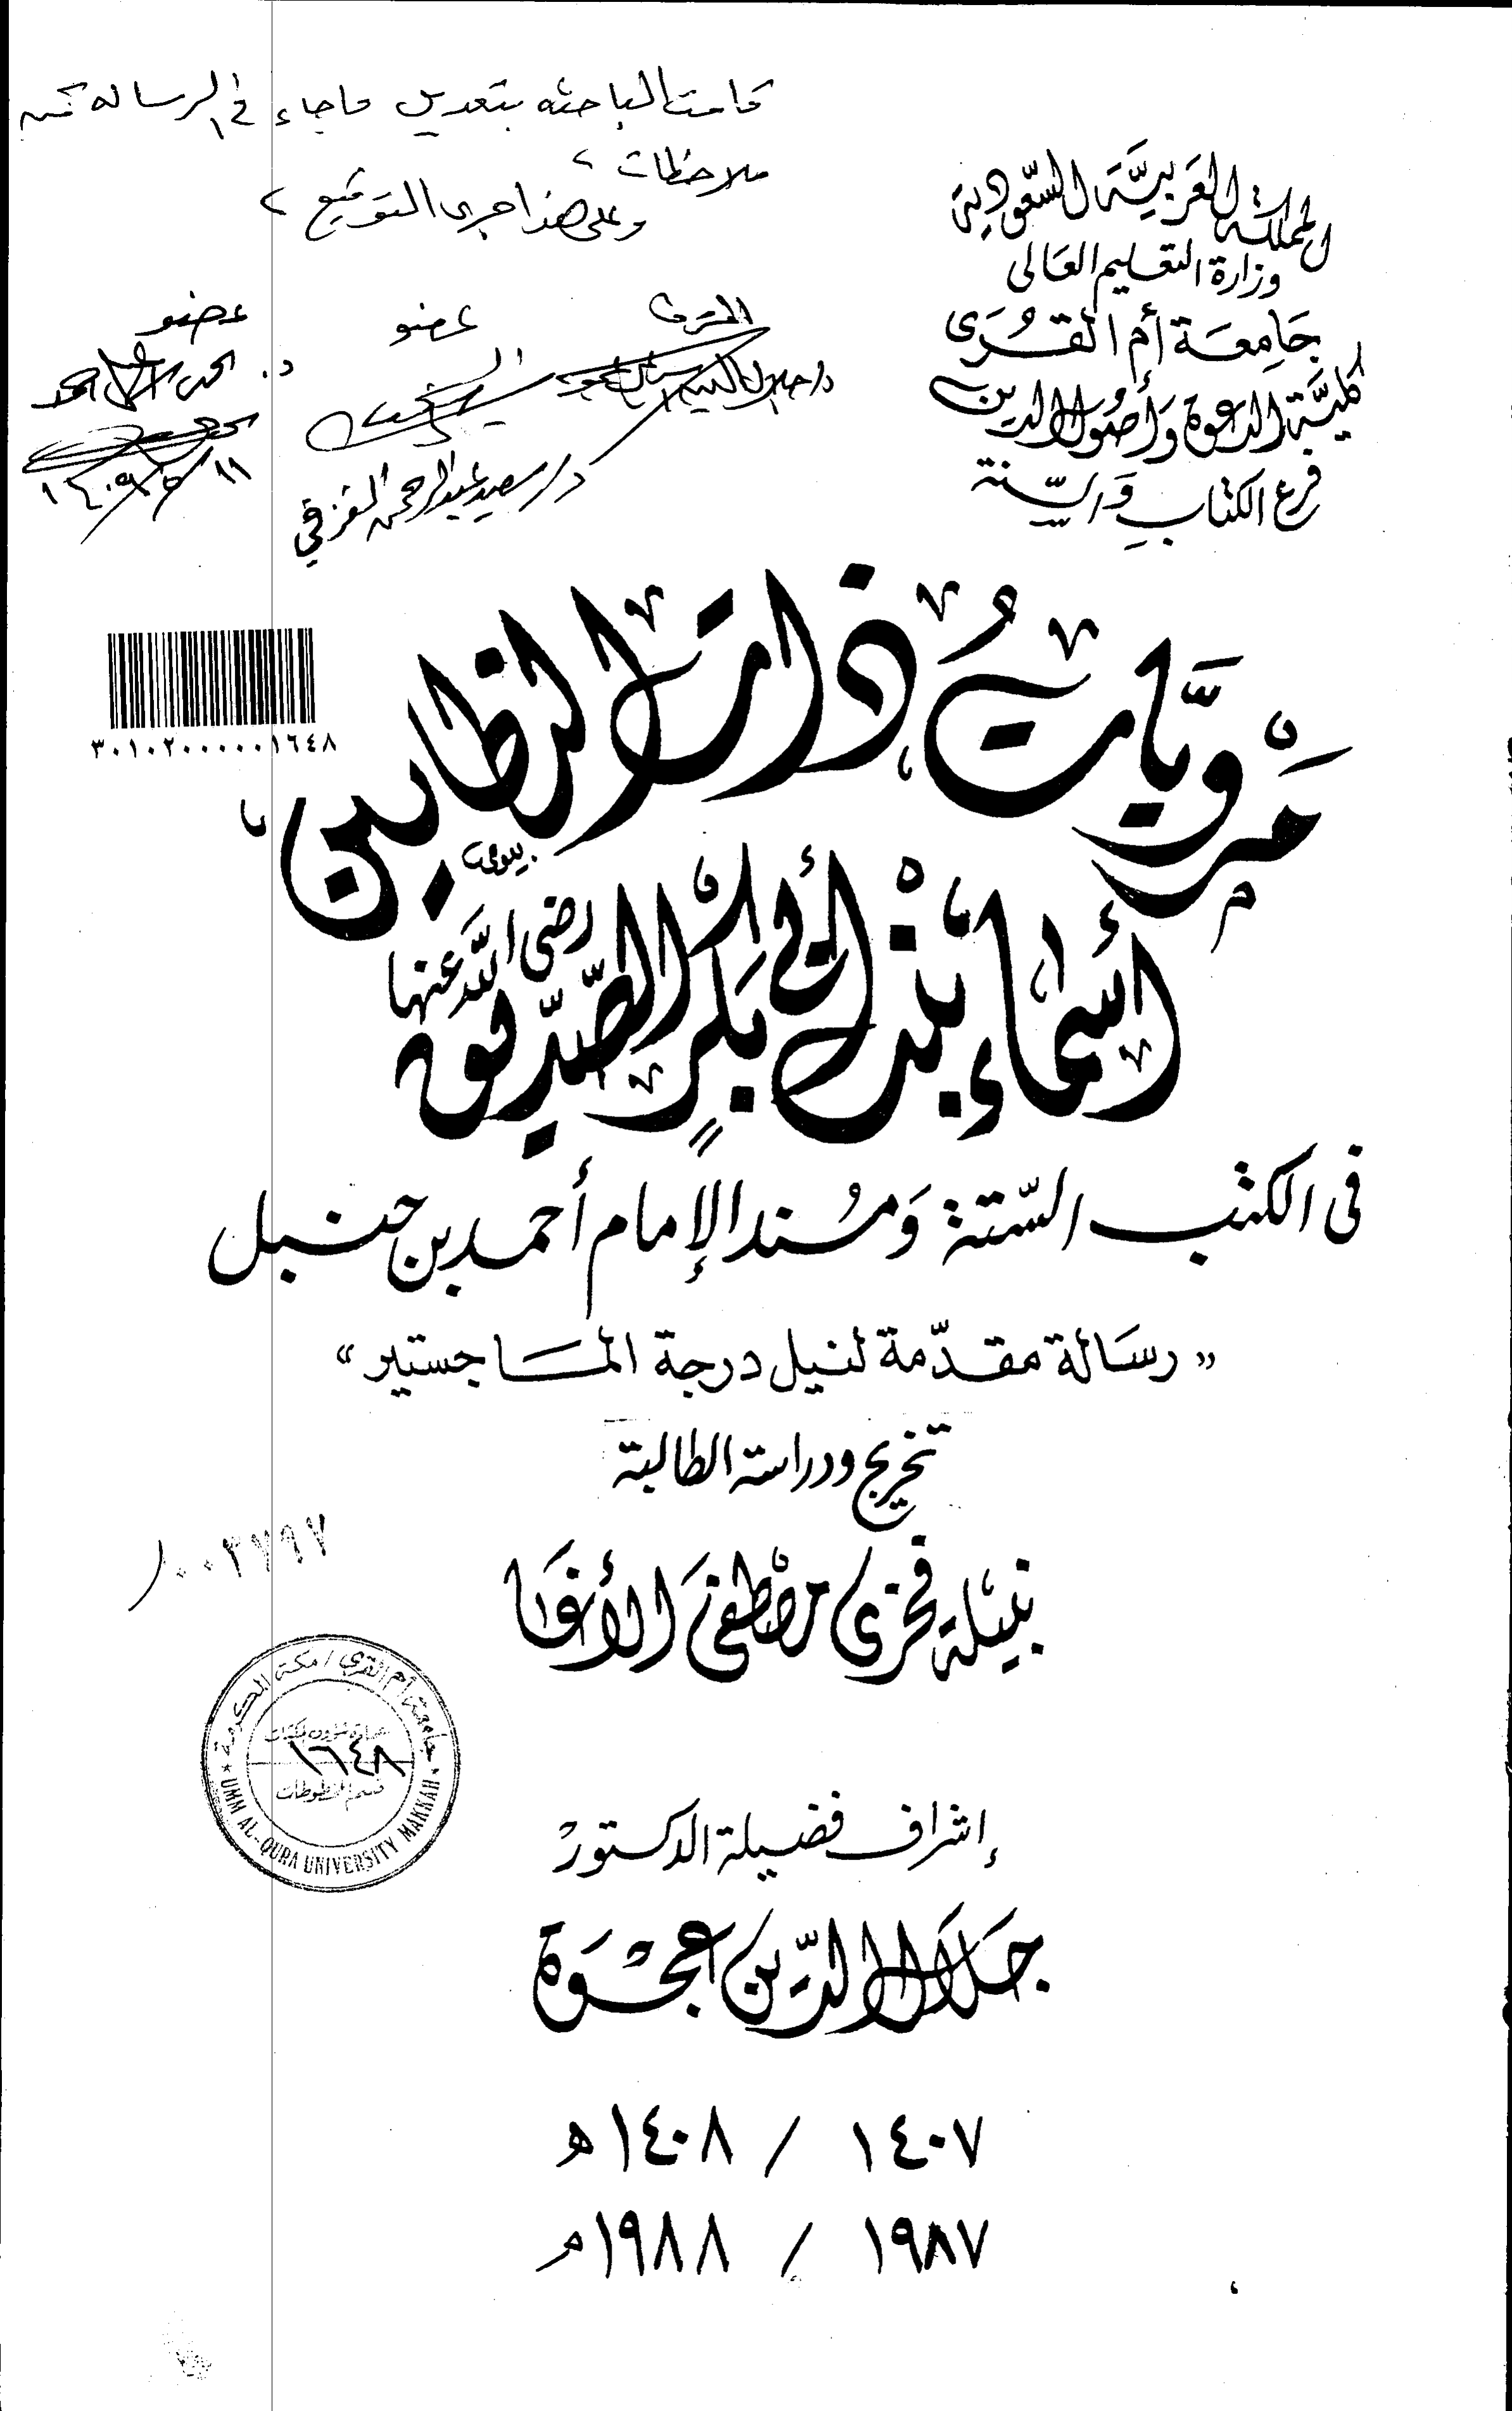 المملكة العربيَّة السّعودية
وزارة التعليم العالى
جَامِعَة أم القُرَى
كليَّة الدعوة وَأصُول الدين
فرع الكتابِ وَالسّنة
قامت الباحثه بتعديل ماجاء في الرساله من
ملاحظات
وعلى هذا جرى التوقيع
المشرف
عضو
عضو
د/ سعيد عبدالرحمن
٣٠١٠٢٠٠٠٠٠١٦٤٨
مَرْويَّاتُ ذات النطاقين
أسْمَاء بنْت أبى بَكْر الصِّدِّيق
رضى اللَّه عنها
فى الكتب السّتة وَمُسند الإمام أحمد بن حنبل
«رسَالة مقدّمة لنيل درجة المَاجستير»
تخريج ودراسة الطالبة
نبيْلة فخرى مصْطفىَ الأغَا
٠٠٢٧٩٧
جامعة أم القرى / مكة المكرمة
عمادة شؤون المكتبات
١٦٤٨
قسم المخطوطات
UMM AL-QURA UNIVERSITY MAKKAH
إشراف فضيلة الدكتورْ
جَلاَل الدِّين عجْوَة
١٤٠٧ / ١٤٠٨ه
١٩٨٧ / ١٩٨٨م